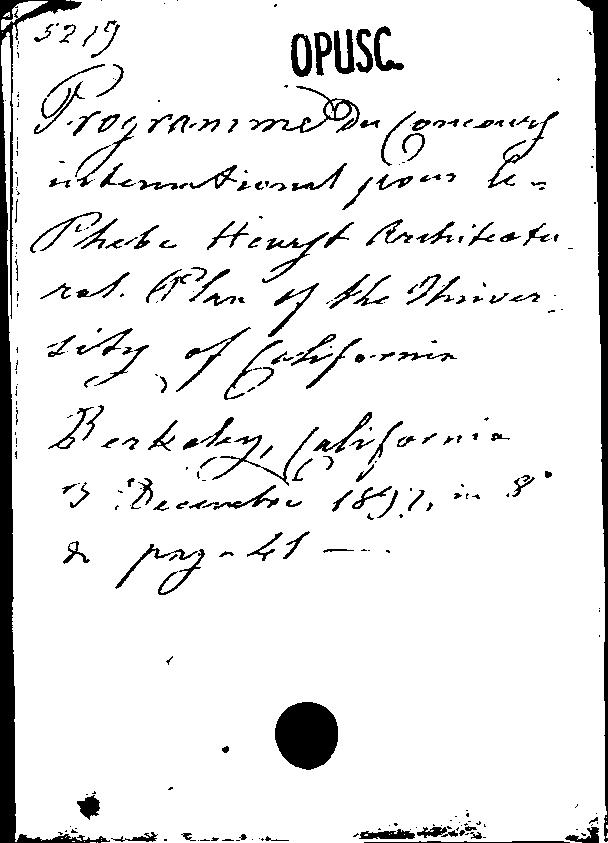 5219
OPUSC.
Programme du Concours
international pour le-
Phebe Hearst Architectu-
ral. Plan of the Univer-
sity of California
Berkeley, California
3 Decembre 1897, in 8°
di pag. 41 —